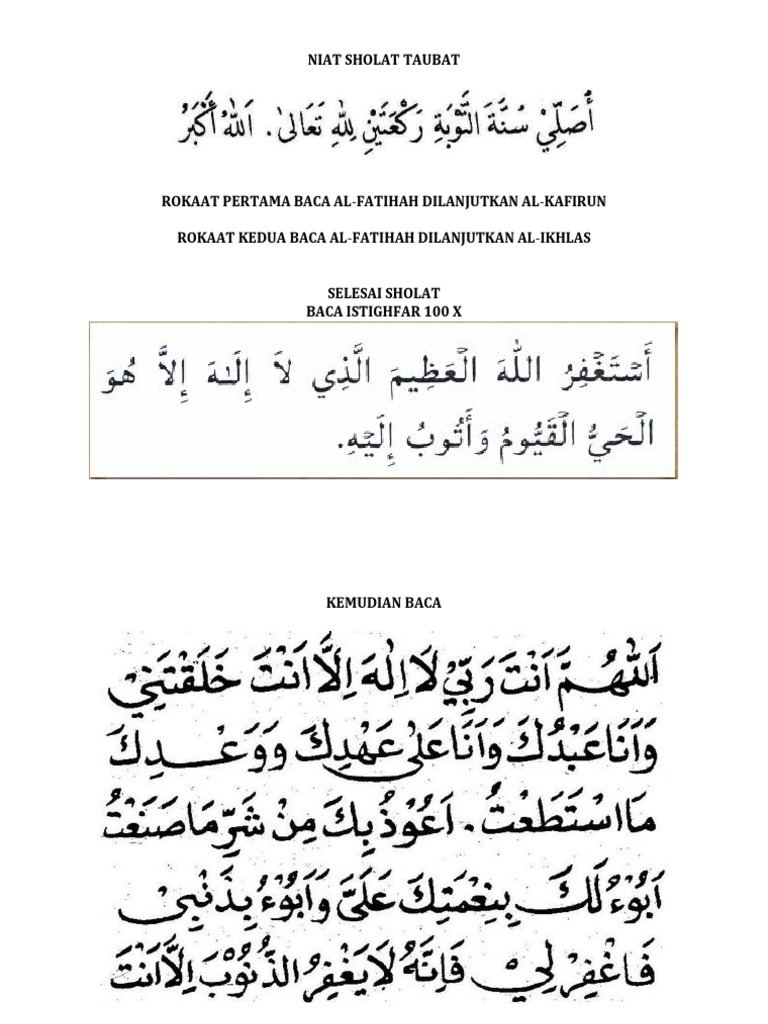 NIAT SHOLAT TAUBAT
أُصَلِّيْ سُنَّةَ التَّوْبَةِ رَكْعَتَيْنِ لِلّٰهِ تَعَالىٰ. اَللّٰهُ أَكْبَرُ
ROKAAT PERTAMA BACA AL-FATIHAH DILANJUTKAN AL-KAFIRUN
ROKAAT KEDUA BACA AL-FATIHAH DILANJUTKAN AL-IKHLAS
SELESAI SHOLAT
BACA ISTIGHFAR 100 X
أَسْتَغْفِرُ اللّٰهَ الْعَظِيمَ الَّذِي لاَ إِلَـٰهَ إِلاَّ هُوَ
الْحَيُّ الْقَيُّومُ وَأَتُوبُ إِلَيْهِ.
KEMUDIAN BACA
اَللّٰهُمَّ اَنْتَ رَبِّيْ لَااِلٰهَ اِلَّا اَنْتَ خَلَقْتَنِيْ
وَاَنَا عَبْدُكَ وَاَنَا عَلٰى عَهْدِكَ وَوَعْدِكَ
مَااسْتَطَعْتُ. اَعُوْذُبِكَ مِنْ شَرِّ مَاصَنَعْتُ
اَبُوْءُ لَكَ بِنِعْمَتِكَ عَلَيَّ وَاَبُوْءُ بِذَنْبِيْ
فَاغْفِرْ لِيْ فَاِنَّهُ لَايَغْفِرُ الذُّنُوْبَ اِلَّا اَنْتَ